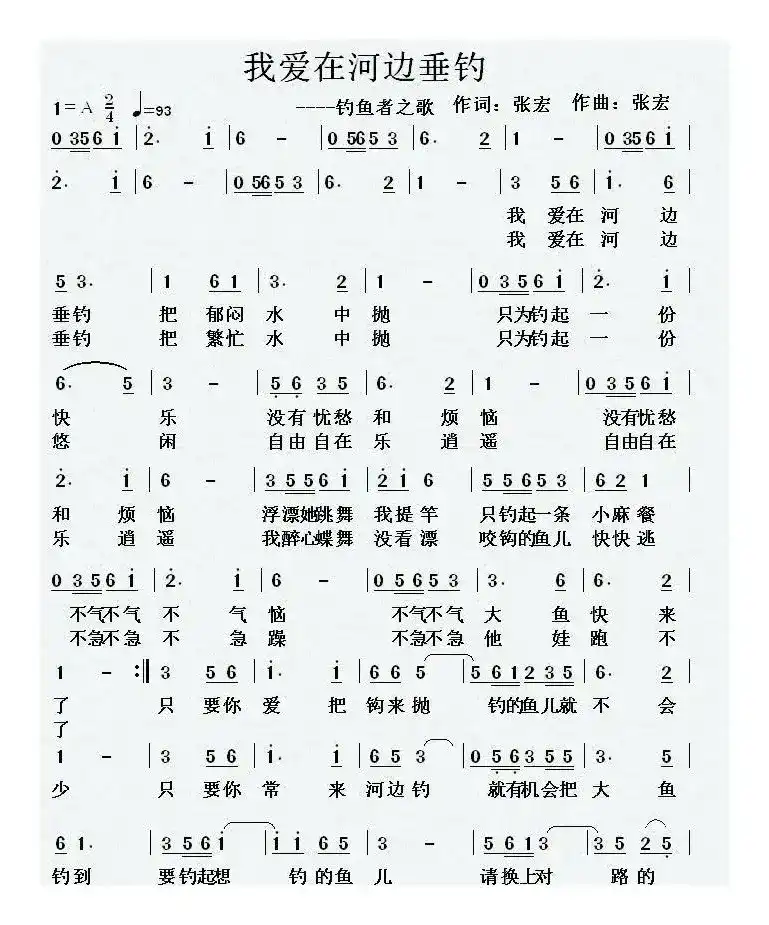 我爱在河边垂钓
1=A 2/4 ♩=93 ----钓鱼者之歌 作词：张宏 作曲：张宏
0 35 6 i | 2· i | 6 - | 0 56 5 3 | 6· 2 | 1 - | 0 35 6 i |
2· i | 6 - | 0 56 5 3 | 6· 2 | 1 - | 3 5 6 | i· 6 |
我 爱在 河 边
我 爱在 河 边
5 3· | 1 6 1 | 3· 2 | 1 - | 0 3 5 6 i | 2· i |
垂钓 把 郁闷 水 中 抛 只为钓起 一 份
垂钓 把 繁忙 水 中 抛 只为钓起 一 份
6· 5 | 3 - | 5 6 3 5 | 6· 2 | 1 - | 0 3 5 6 i |
快 乐 没有 忧愁 和 烦 恼 没有忧愁
悠 闲 自由 自在 乐 逍 遥 自由自在
2· i | 6 - | 3 5 5 6 i | 2 i 6 | 5 5 6 5 3 | 6 2 1 |
和 烦 恼 浮漂她跳舞 我提竿 只钓起一条 小麻餐
乐 逍 遥 我醉心蝶舞 没看漂 咬钩的鱼儿 快快逃
0 3 5 6 i | 2· i | 6 - | 0 5 6 5 3 | 3· 6 | 6· 2 |
不气不气 不 气 恼 不气不气 大 鱼 快 来
不急不急 不 急 躁 不急不急 他 娃 跑 不
1 - :‖ 3 5 6 | i· i | 6 6 5 | 5 6 1 2 3 5 | 6· 2 |
了 只 要你 爱 把 钩来 抛 钓的鱼儿就 不 会
了
1 - | 3 5 6 | i· i | 6 5 3 | 0 5 6 3 5 5 | 3· 5 |
少 只 要你 常 来 河边 钓 就有机会把 大 鱼
6 1· | 3 5 6 i | i i 6 5 | 3 - | 5 6 1 3 | 3 5 2 5 |
钓到 要钓起想 钓 的 鱼 儿 请换上对 路 的